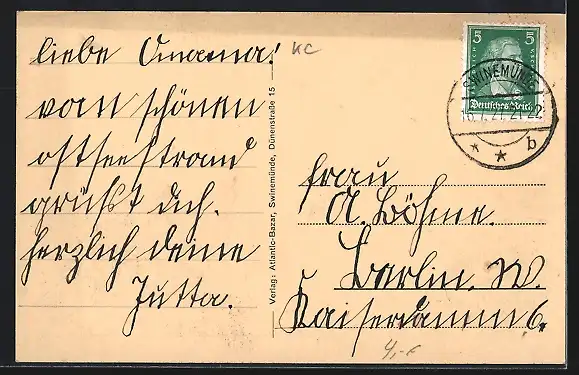 liebe Omama!
vom schönen
ostseestrand
grüßt dich.
herzlich deine
Jutta.
KC
Verlag: Atlantic-Bazar, Swinemünde, Dünenstraße 15
5 5
Deutsches Reich
SWINEMÜNDE
b
frau
A. Böhme.
Berlin. W.
Kaiserdamm 6.
4,-€